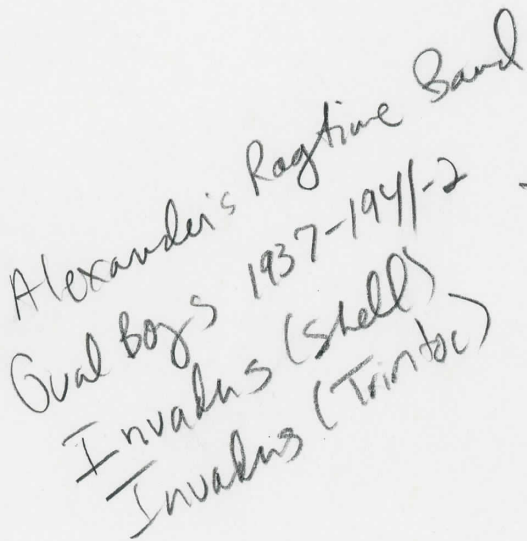 Alexander's Ragtime Band
Oval Boys 1937-1941-2
Invaders (Shell)
Invaders (Trintoc)